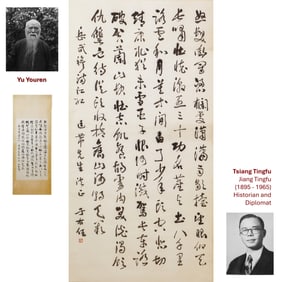 Yu Youren
怒髮衝冠憑闌處瀟瀟雨歇擡望眼仰天
長嘯壯懷激烈三十功名塵與土八千里
路雲和月莫等閒白了少年頭空悲切
靖康恥猶未雪臣子恨何時滅駕長車踏
破賀蘭山缺壯志飢餐胡虜肉笑談渴飲
血待從頭收拾舊山河朝天闕
岳武穆滿江紅
先生法正 于右任
Tsiang Tingfu
Jiang Tingfu
(1895 - 1965)
Historian and
Diplomat